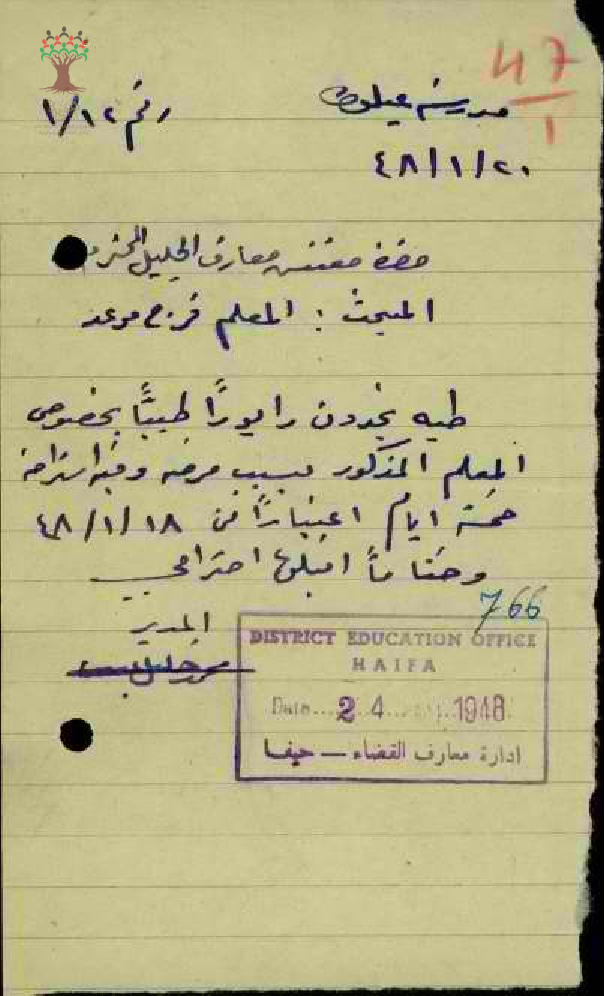 47
1
مدرسة عيلوط
رقم ١/١٢
٤٨/١/٢٠
حضرة مفتش معارف الجليل المحترم
المبحث : المعلم فرج موعد
طيه تجدون رابورًا طبيًّا بخصوص
المعلم المذكور بسبب مرضه وفيه استراحة
خمسة ايام اعتبارًا من ٤٨/١/١٨
وختاماً اقبلوا احترامي
المدير
766
DISTRICT EDUCATION OFFICE
HAIFA
Date... 24 ... 1948
ادارة معارف القضاء — حيفا